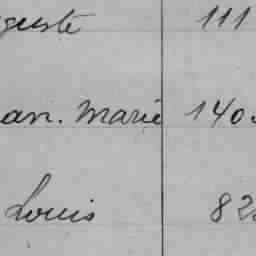 guste 111
an. Marie 140.
Louis 82